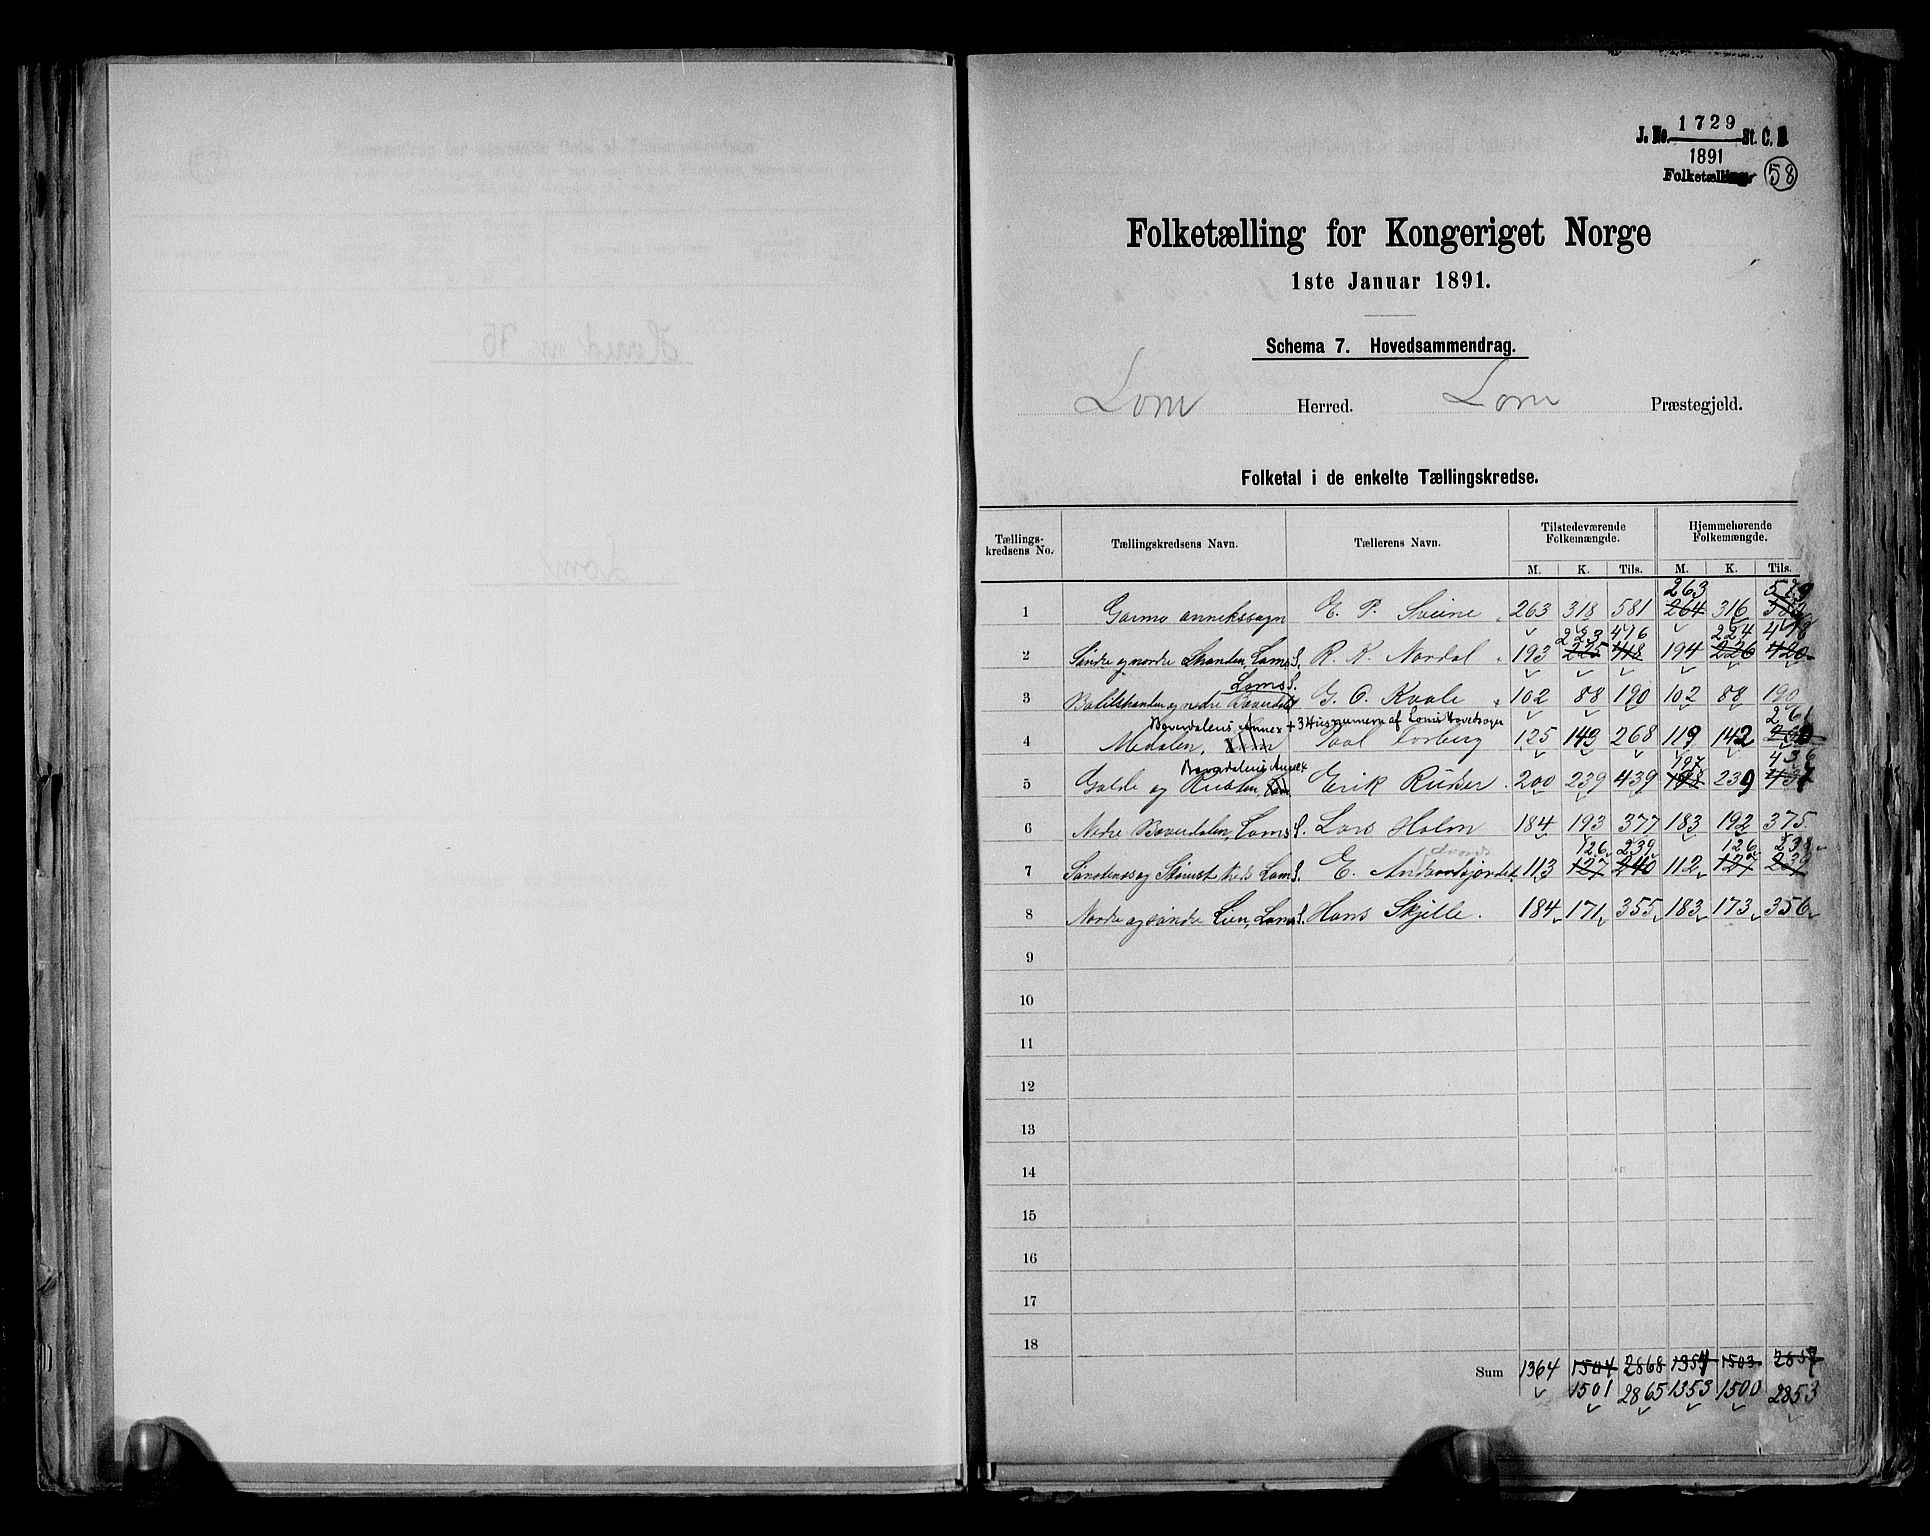 J. No. 1729 St. C. B
1891
Folketælling 58
Folketælling for Kongeriget Norge
1ste Januar 1891.
Schema 7. Hovedsammendrag.
Lom Herred. Lom Præstegjeld.
Folketal i de enkelte Tællingskredse.
Tællings-kredsens No. Tællingskredsens Navn. Tællerens Navn. Tilstedeværende Folkemængde. Hjemmehørende Folkemængde.
M. K. Tils. M. K. Tils.
263 579
1 Garmo annekssogn E. P. Sveine 263 318 581 264 316
223 416 224 418
2 Søndre og nordre Stranden, Loms S. R. K. Nordal 193 225 418 194 226 420
Loms S.
3 og nedre G. O. Kvale 102 88 190 102 88 190
Bæverdalens Annex + 3 Husnumere af Loms Hovedsogn 261
4 Medalen, Lom Paal Forberg 125 143 268 119 142
Bæverdalens Annex 197 436
5 Galde og Lom Erik 200 239 439 198 239 437
6 Nedre Bæverdalen, Loms S. Lars Holm 184 193 377 183 192 375
126 239 126 238
7 og Loms S. E. 113 127 240 112 127 239
8 Nordre og søndre Lien, Loms S. Hans Skjelle. 184 171 355 183 173 356
9
10
11
12
13
14
15
16
17
18
Sum 1364 1504 2868 1354 1503 2857
1501 2865 1353 1500 2853